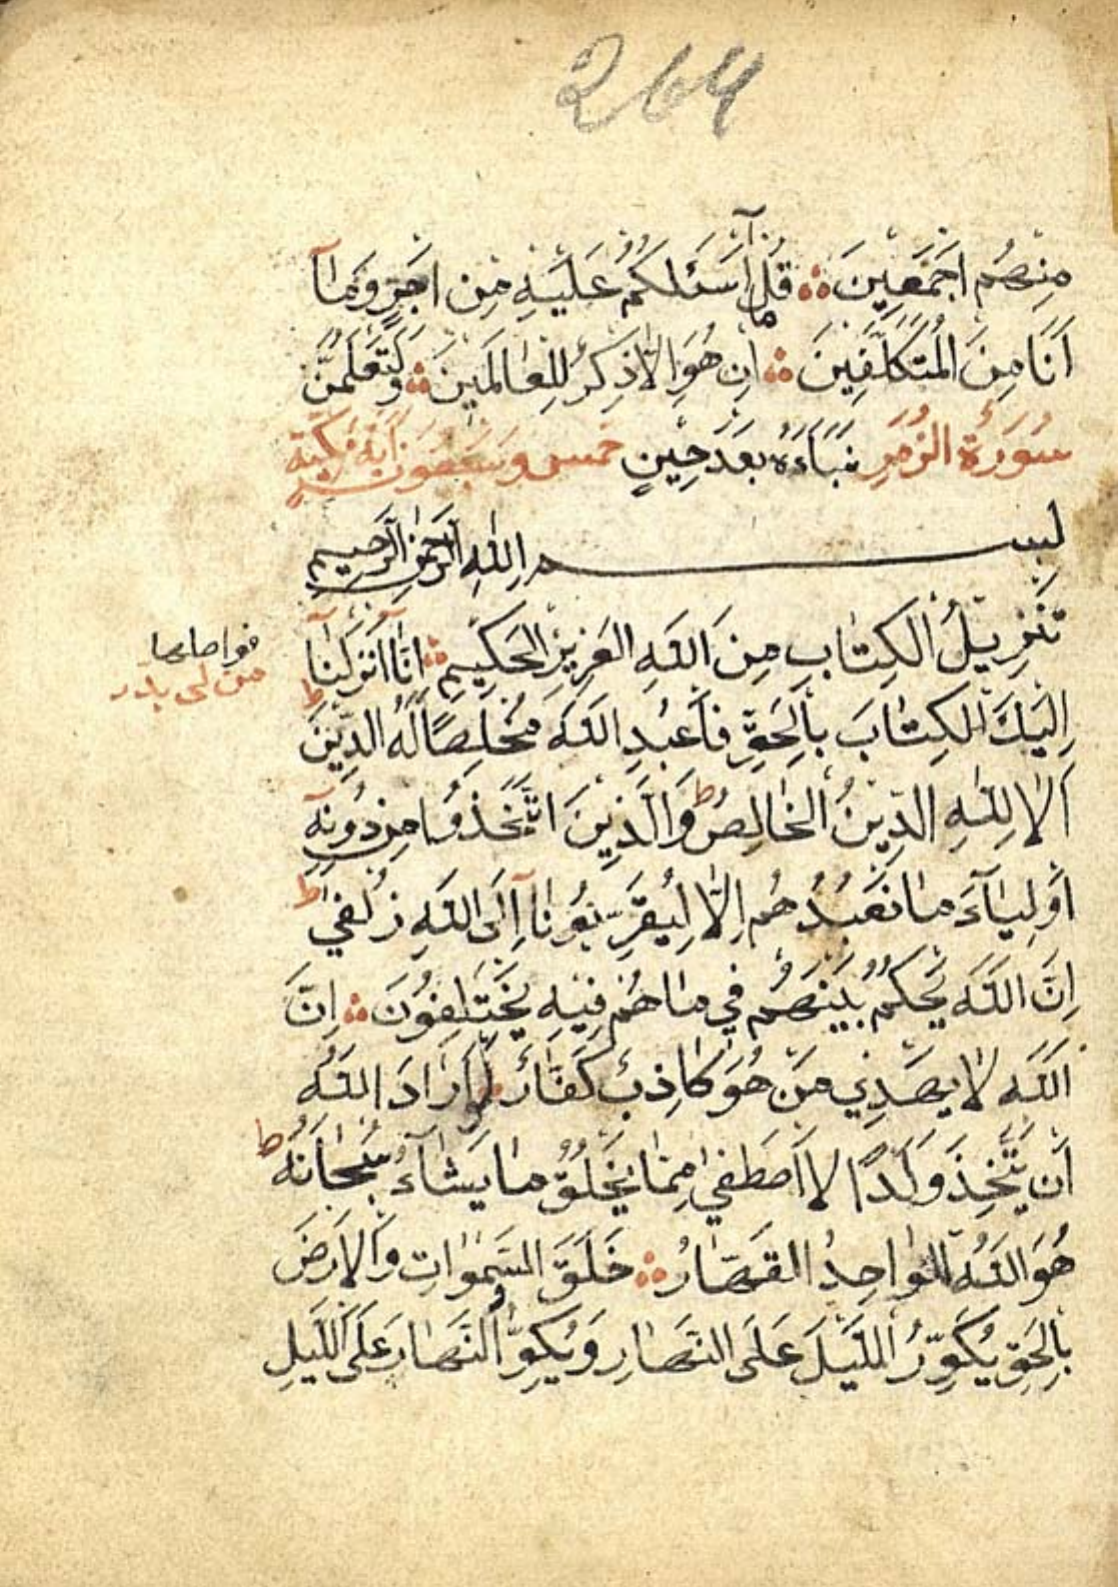 264
مِنْهُمْ اَجْمَعِينَ ۞ قُلْ مَآ اَسْـَٔلُكُمْ عَلَيْهِ مِنْ اَجْرٍ وَمَآ
اَنَا مِنَ الْمُتَكَلِّفِينَ ۞ اِنْ هُوَ اِلَّا ذِكْرٌ لِلْعَالَمِينَ ۞ وَلَتَعْلَمُنَّ
سُورَةُ الزُّمَرِ نَبَاَهُ بَعْدَ حِينٍ خمس وسبعون اٰية مكية
بِسْمِ اللّٰهِ الرَّحْمٰنِ الرَّحِيمِ
تَنْزِيلُ الْكِتَابِ مِنَ اللّٰهِ الْعَزِيزِ الْحَكِيمِ ۞ اِنَّا اَنْزَلْنَآ
فواصلها
من لى بدر
اِلَيْكَ الْكِتَابَ بِالْحَقِّ فَاعْبُدِ اللّٰهَ مُخْلِصًا لَهُ الدِّينَ ط
اَلَا لِلّٰهِ الدِّينُ الْخَالِصُ ط وَالَّذِينَ اتَّخَذُوا مِنْ دُونِهِٓ
اَوْلِيَآءَ مَا نَعْبُدُهُمْ اِلَّا لِيُقَرِّبُونَآ اِلَى اللّٰهِ زُلْفٰى ط
اِنَّ اللّٰهَ يَحْكُمُ بَيْنَهُمْ فِي مَا هُمْ فِيهِ يَخْتَلِفُونَ ۞ اِنَّ
اللّٰهَ لَا يَهْدِي مَنْ هُوَ كَاذِبٌ كَفَّارٌ ۞ لَوْ اَرَادَ اللّٰهُ
اَنْ يَتَّخِذَ وَلَدًا لَاصْطَفٰى مِمَّا يَخْلُقُ مَا يَشَآءُ سُبْحَانَهُ ط
هُوَ اللّٰهُ الْوَاحِدُ الْقَهَّارُ ۞ خَلَقَ السَّمٰوَاتِ وَالْاَرْضَ
بِالْحَقِّ يُكَوِّرُ اللَّيْلَ عَلَى النَّهَارِ وَيُكَوِّرُ النَّهَارَ عَلَى اللَّيْلِ